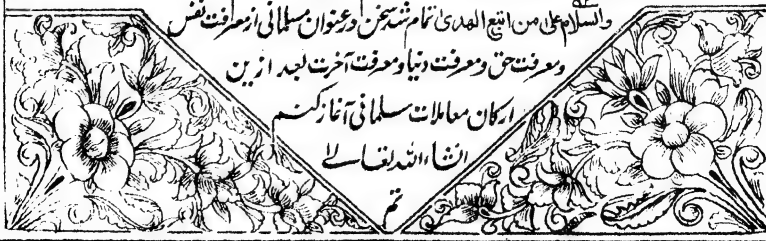 والسلام علی من اتبع الهدی تمام شد سخن در عنوان مسلمانی از معرفت نفس
ومعرفت حق ومعرفت دنیا ومعرفت آخرت بعد ازین
ارکان معاملات مسلمانی آغاز کنم
انشاء الله تعالی
تم